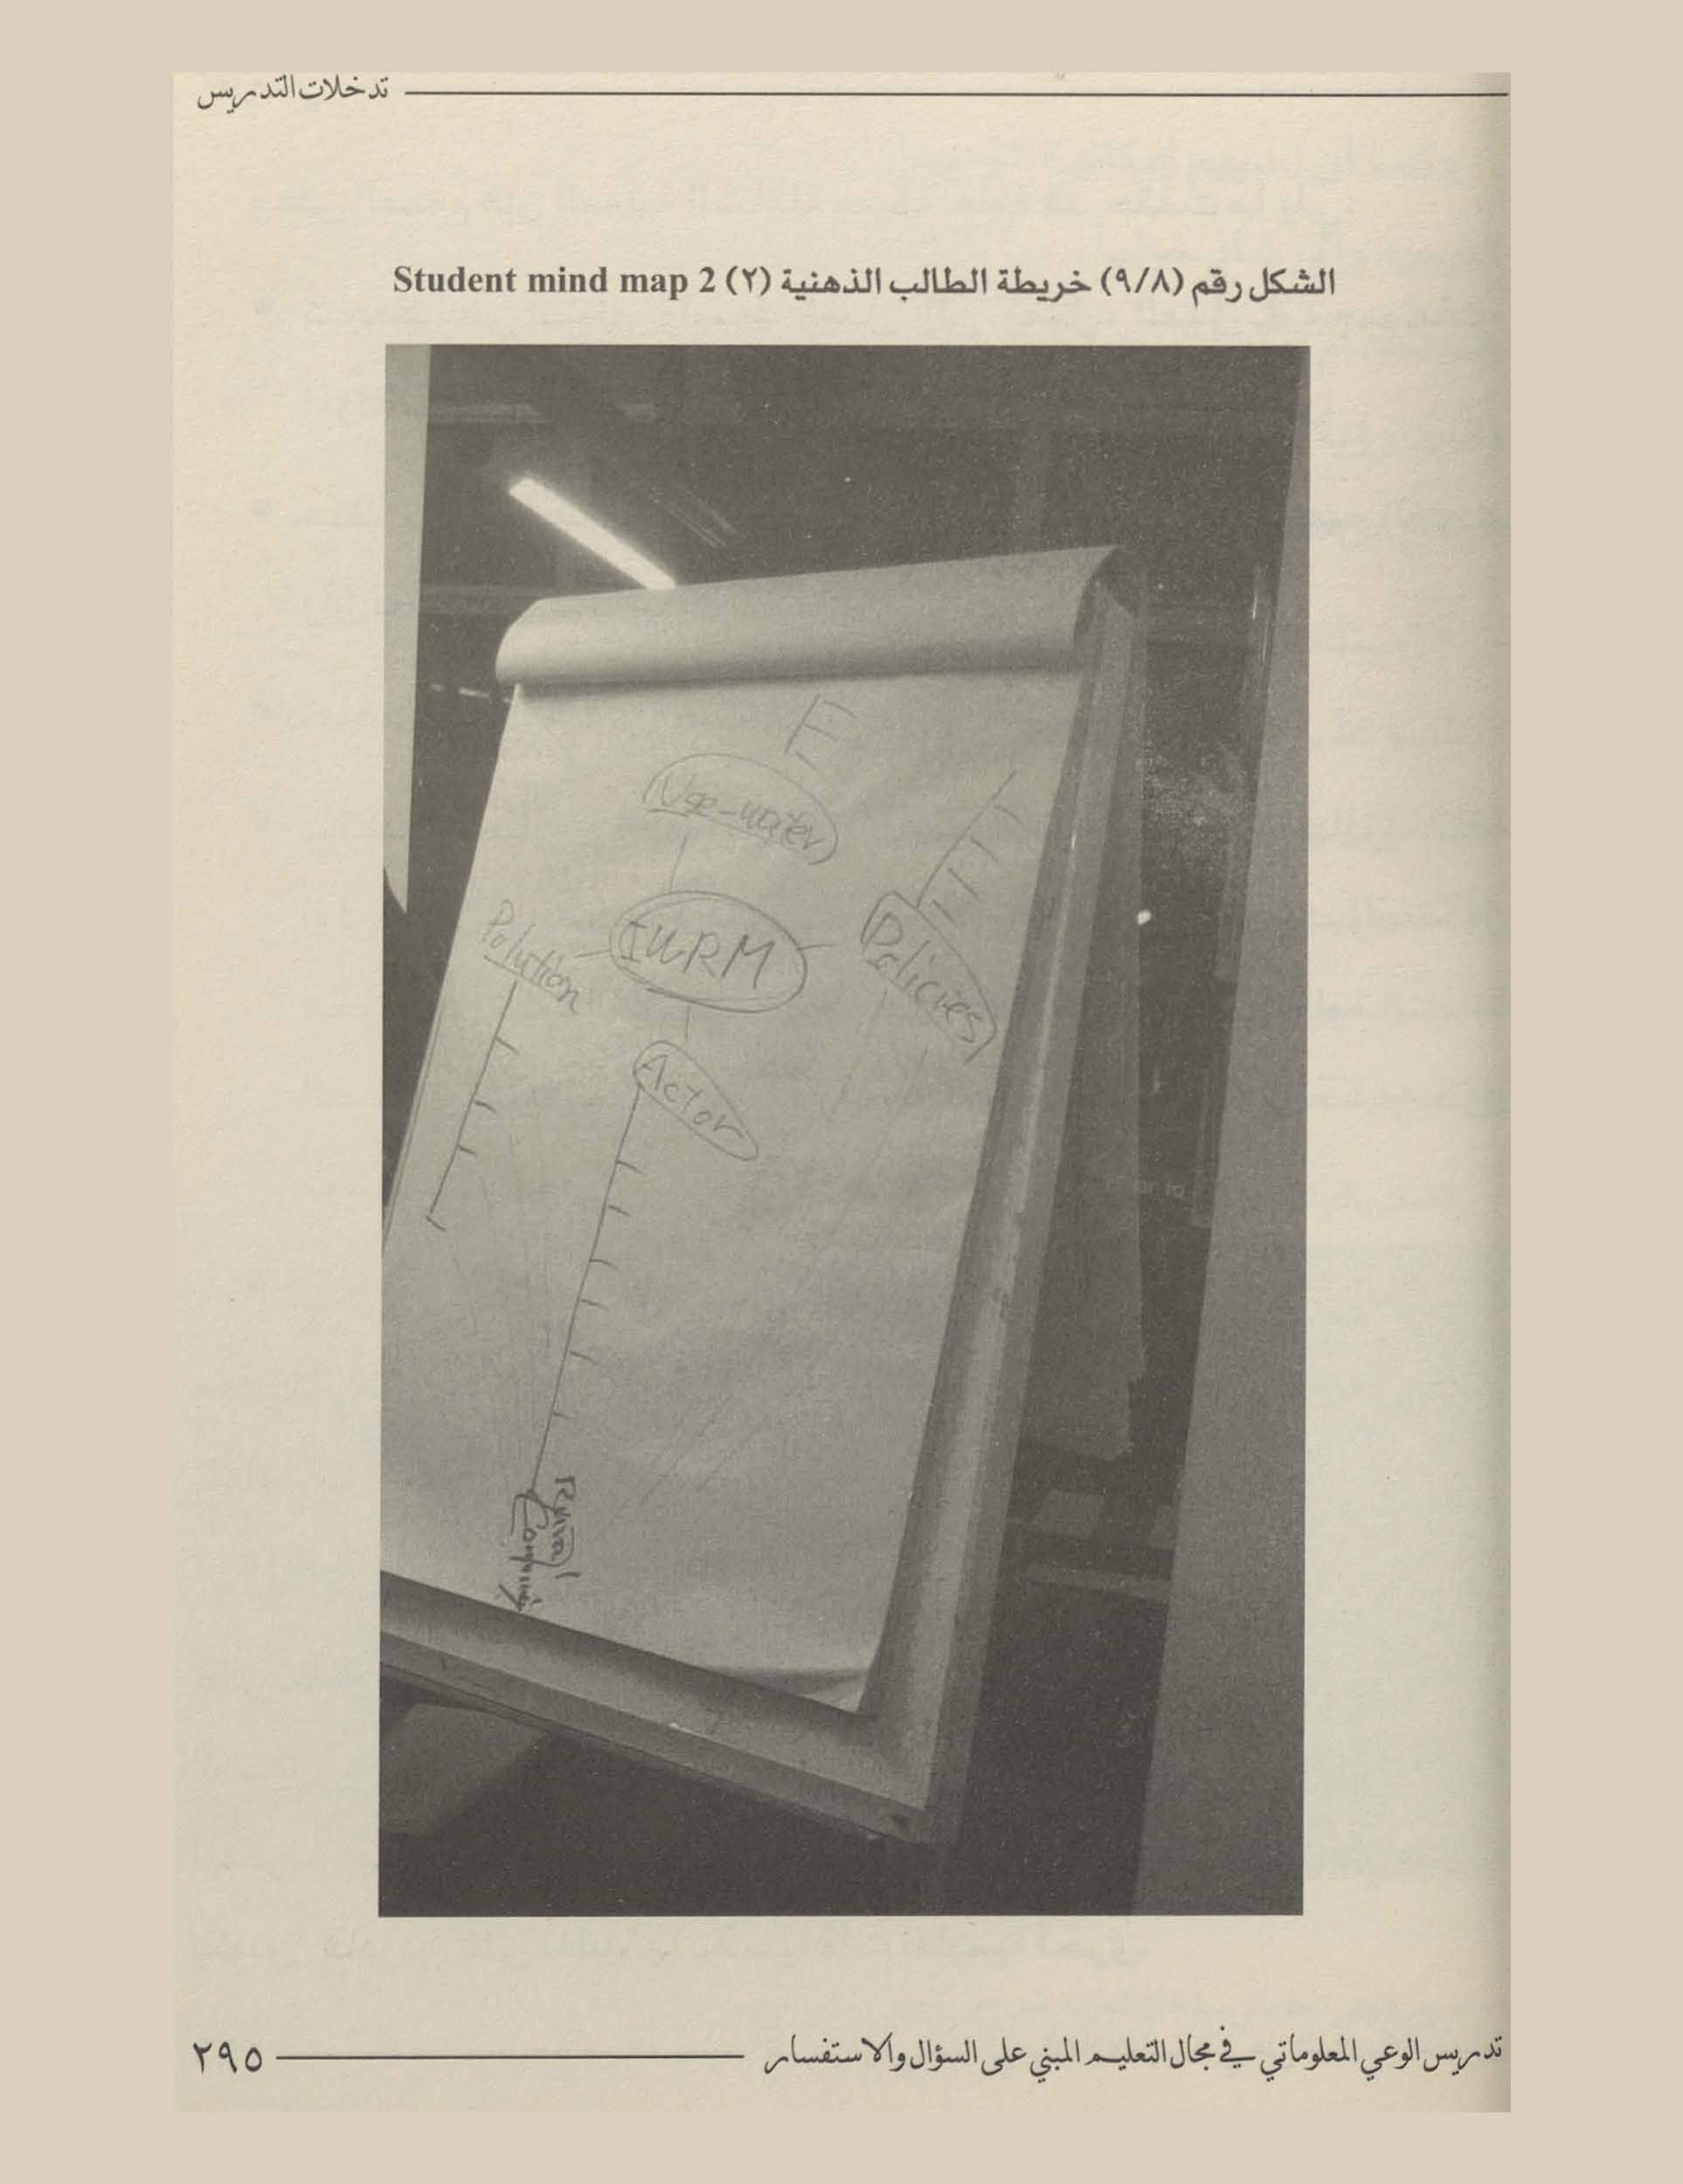 تدخلات التدريس
الشكل رقم (٩/٨) خريطة الطالب الذهنية (٢) Student mind map 2
Use-water
Polution
IWRM
Policies
Actor
تدريس الوعي المعلوماتي في مجال التعليم المبني على السؤال والاستفسار
٢٩٥